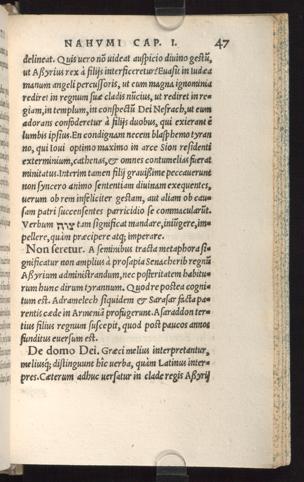 NAHVMI CAP. I. 47
delineat. Quis vero nõ videat auspicio divino gestũ,
ut Aßyrius rex à filijs interficeretur? Evasit in Iudæa
manum angeli percussoris, ut cum magna ignominia
rediret in regnum suæ cladis nũcius, ut rediret in re-
giam, in templum, in conspectũ Dei Nesrach, ut eum
adorans confoderetur à filijs duobus, qui exierant é
lumbis ipsius. En condignam necem blasphemo tyran
no, qui Iovi optimo maximo in arce Sion residenti
exterminium, cathenas, & omnes contumelias fuerat
minitatus. Interim tamen filij gravißime peccaverunt
non syncero animo sententiam divinam exequentes,
verum ob rem infeliciter gestam, aut aliam ob cau-
sam patri succensentes parricidio se commacularũt.
Verbum צוה tam significat mandare, iniũgere, im-
pellere, quàm præcipere atq; imperare.
Non seretur. A seminibus tracta metaphora si-
gnificatur non amplius à prosapia Senacherib regnũ
Aßyrium administrandum, nec posteritatem habitu-
rum hunc dirum tyrannum. Quod re postea cogni-
tum est. Adramelech siquidem & Sarasar facta pa-
rentis cæde in Armeniã profugerunt. Asaraddon ter-
tius filius regnum suscepit, quod post paucos annos
funditus eversum est.
De domo Dei. Græci melius interpretantur,
meliusq; distinguunt hîc verba, quàm Latinus inter-
pres. Cæterum adhuc versatur in clade regis Aßyrij